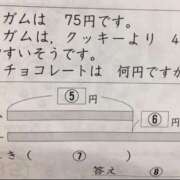 ガムは 75円です。
ガムは、クッキーより 4
すいそうです。
チョコレートは 何円ですか
⑤ 円
⑥ 円
き( ⑦ )
答え ⑧